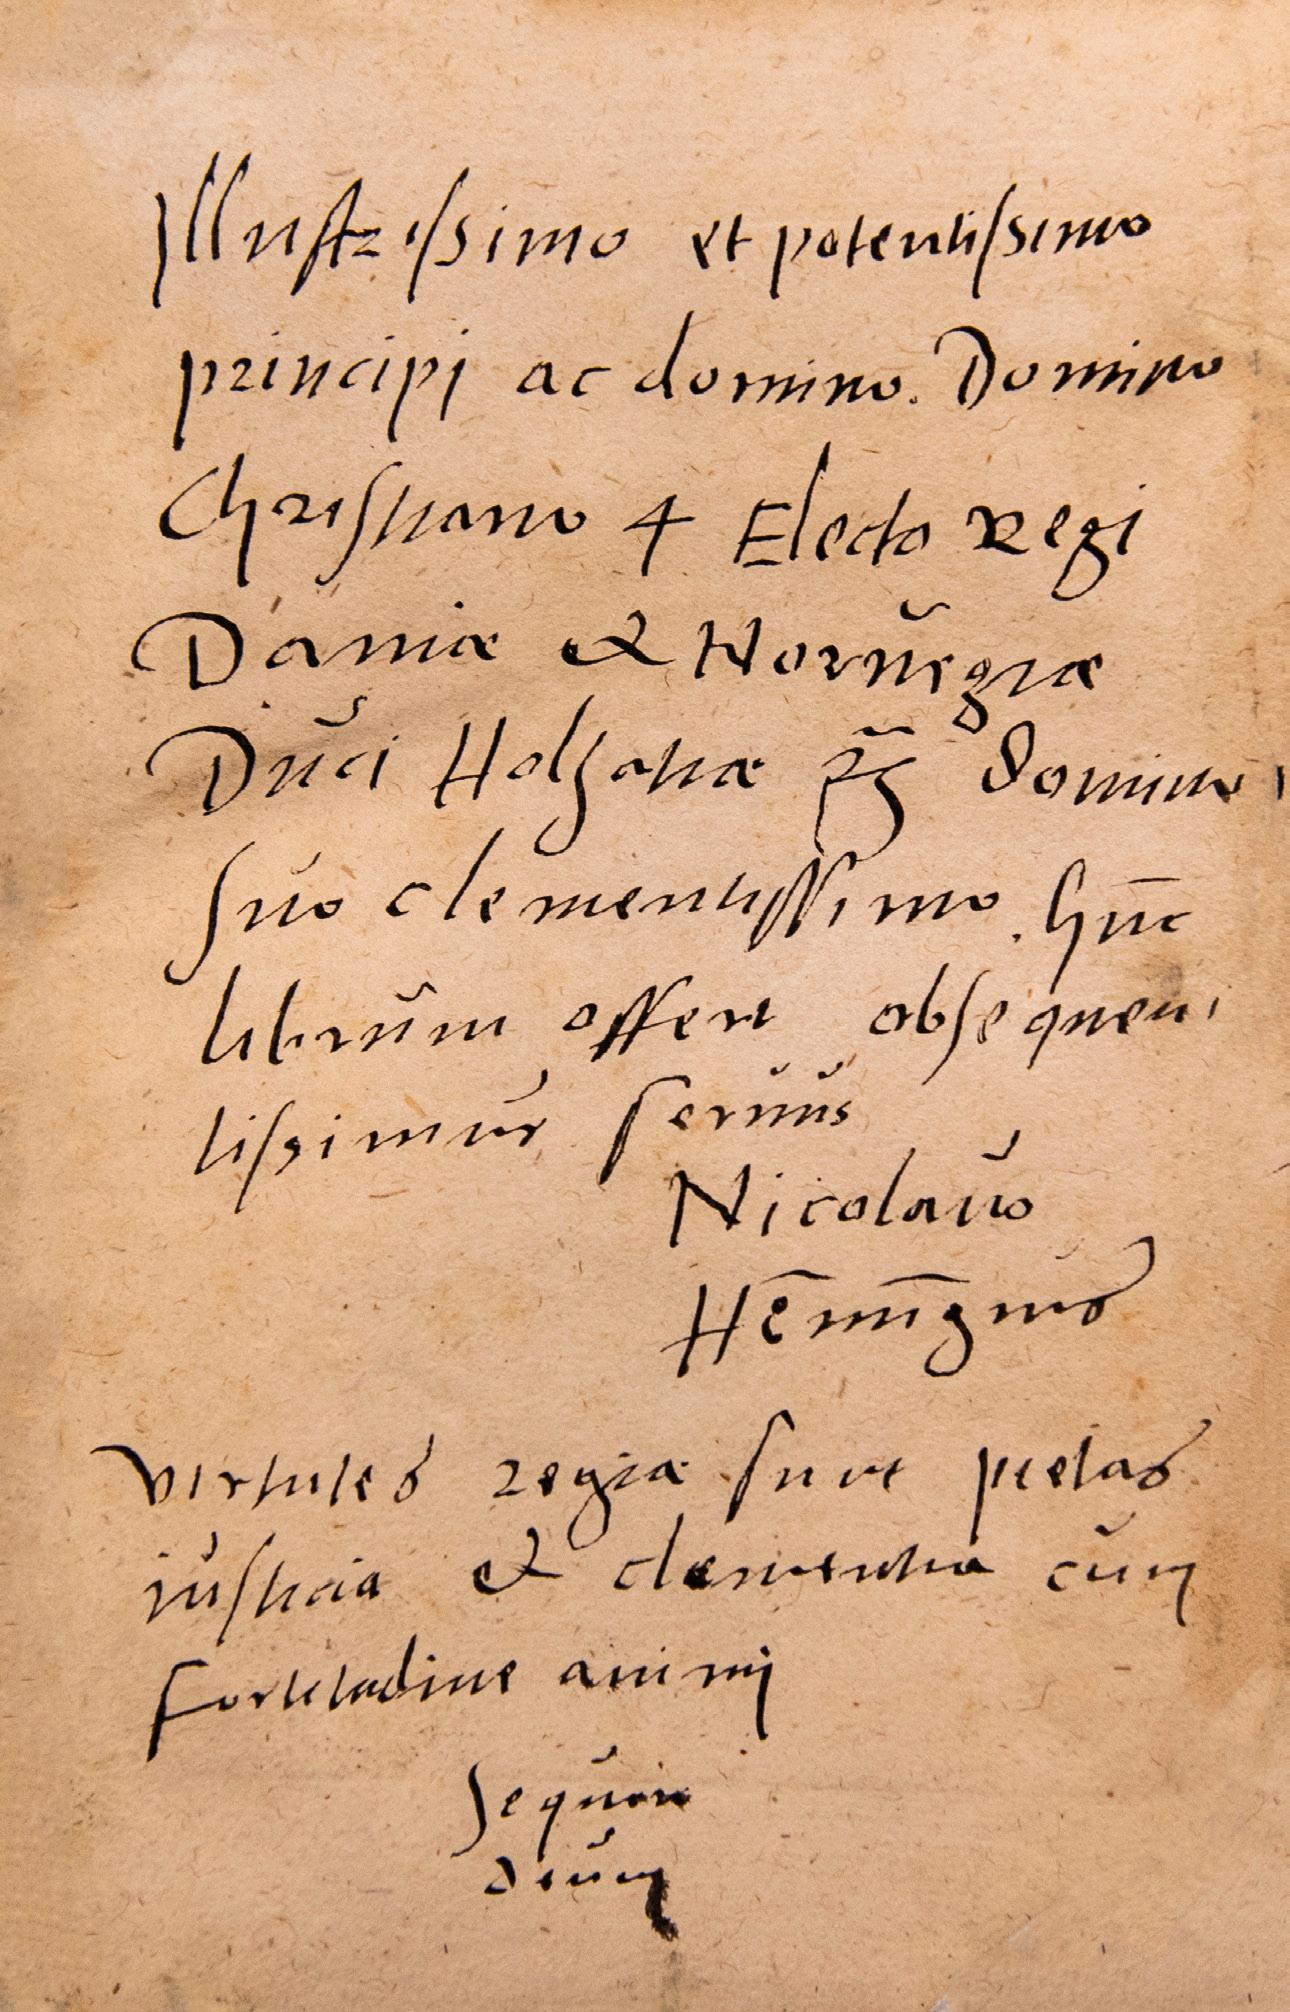 Illustrissimo et potentissimo
principi ac domino. Domino
Christiano 4 Electo Regi
Daniæ & Norŭegiæ
Dŭci Holsatiæ domino
sŭo clementissimo. hŭc
librŭm offert obsequen
tissimus serŭŭs
Nicolaŭs
Hēmīgius
Virtutes regiæ sunt pietas
iŭsticia & clementia cŭm
fortitudine animi
Sequŭr
deŭm